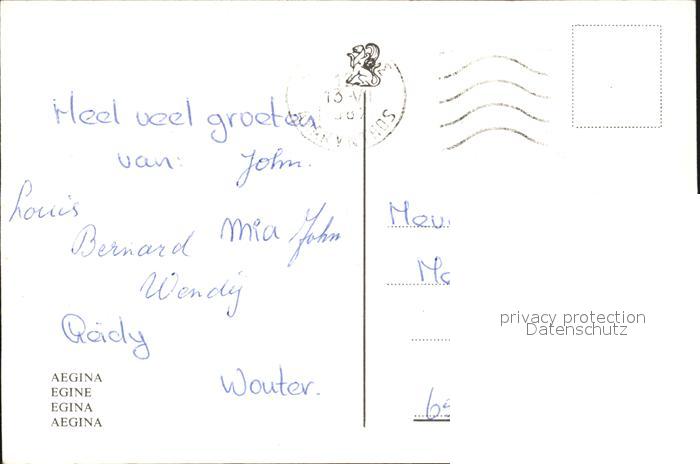 13 VI
Heel veel groeten
van: John.
Louis
Bernard Mia John
Wendy
Rädy
Wouter.
AEGINA
EGINE
EGINA
AEGINA
privacy protection
Datenschutz